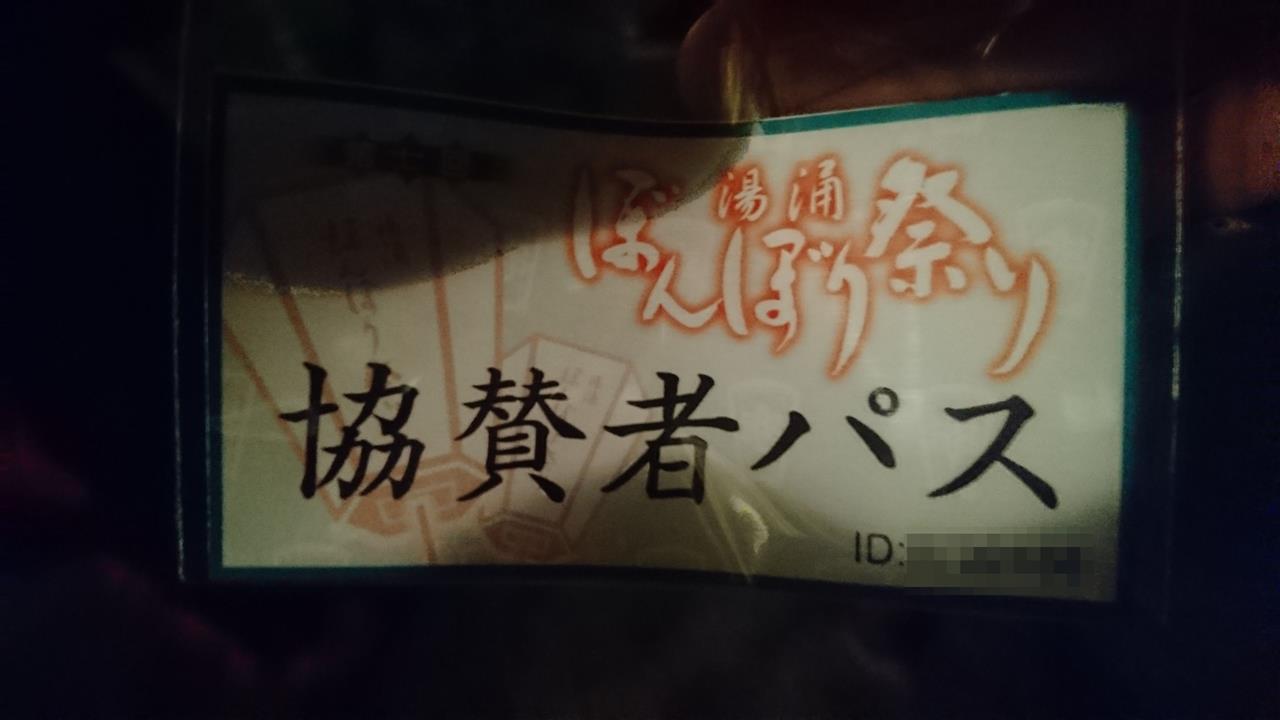 湯涌
ぼんぼり祭り
協賛者パス
ID: